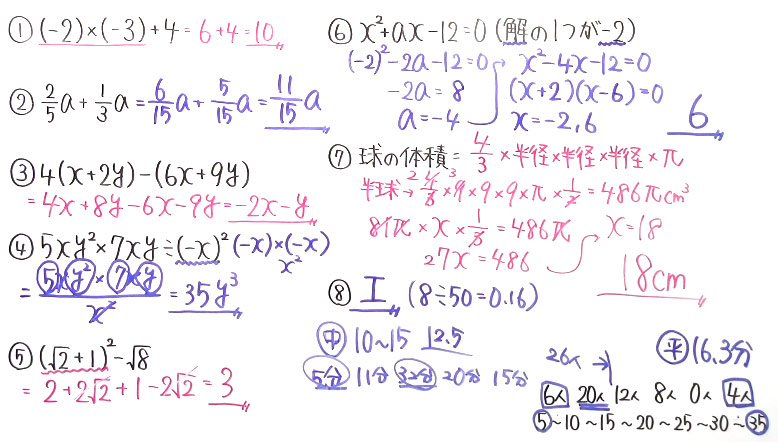 ① (-2)×(-3)+4=6+4=10
② 2/5a+1/3a=6/15a+5/15a=11/15a
③ 4(x+2y)-(6x+9y)
=4x+8y-6x-9y=-2x-y
④ 5xy²×7xy÷(-x)² (-x)×(-x)
x²
=5xy²×7xy/x²=35y³
⑤ (√2+1)²-√8
=2+2√2+1-2√2=3
⑥ x²+ax-12=0 (解の1つが-2)
(-2)²-2a-12=0 x²-4x-12=0
-2a=8 (x+2)(x-6)=0
a=-4 x=-2,6 6
⑦ 球の体積=4/3×半径×半径×半径×π
半球→4/3×9×9×9×π×1/2=486πcm³
2 3
81π×x×1/3=486π x=18
27x=486
18cm
⑧ エ (8÷50=0.16)
中 10~15 12.5
5分 11分 32分 20分 15分
26人→
平 16.3分
6人 20人 12人 8人 0人 4人
5~10~15~20~25~30~35